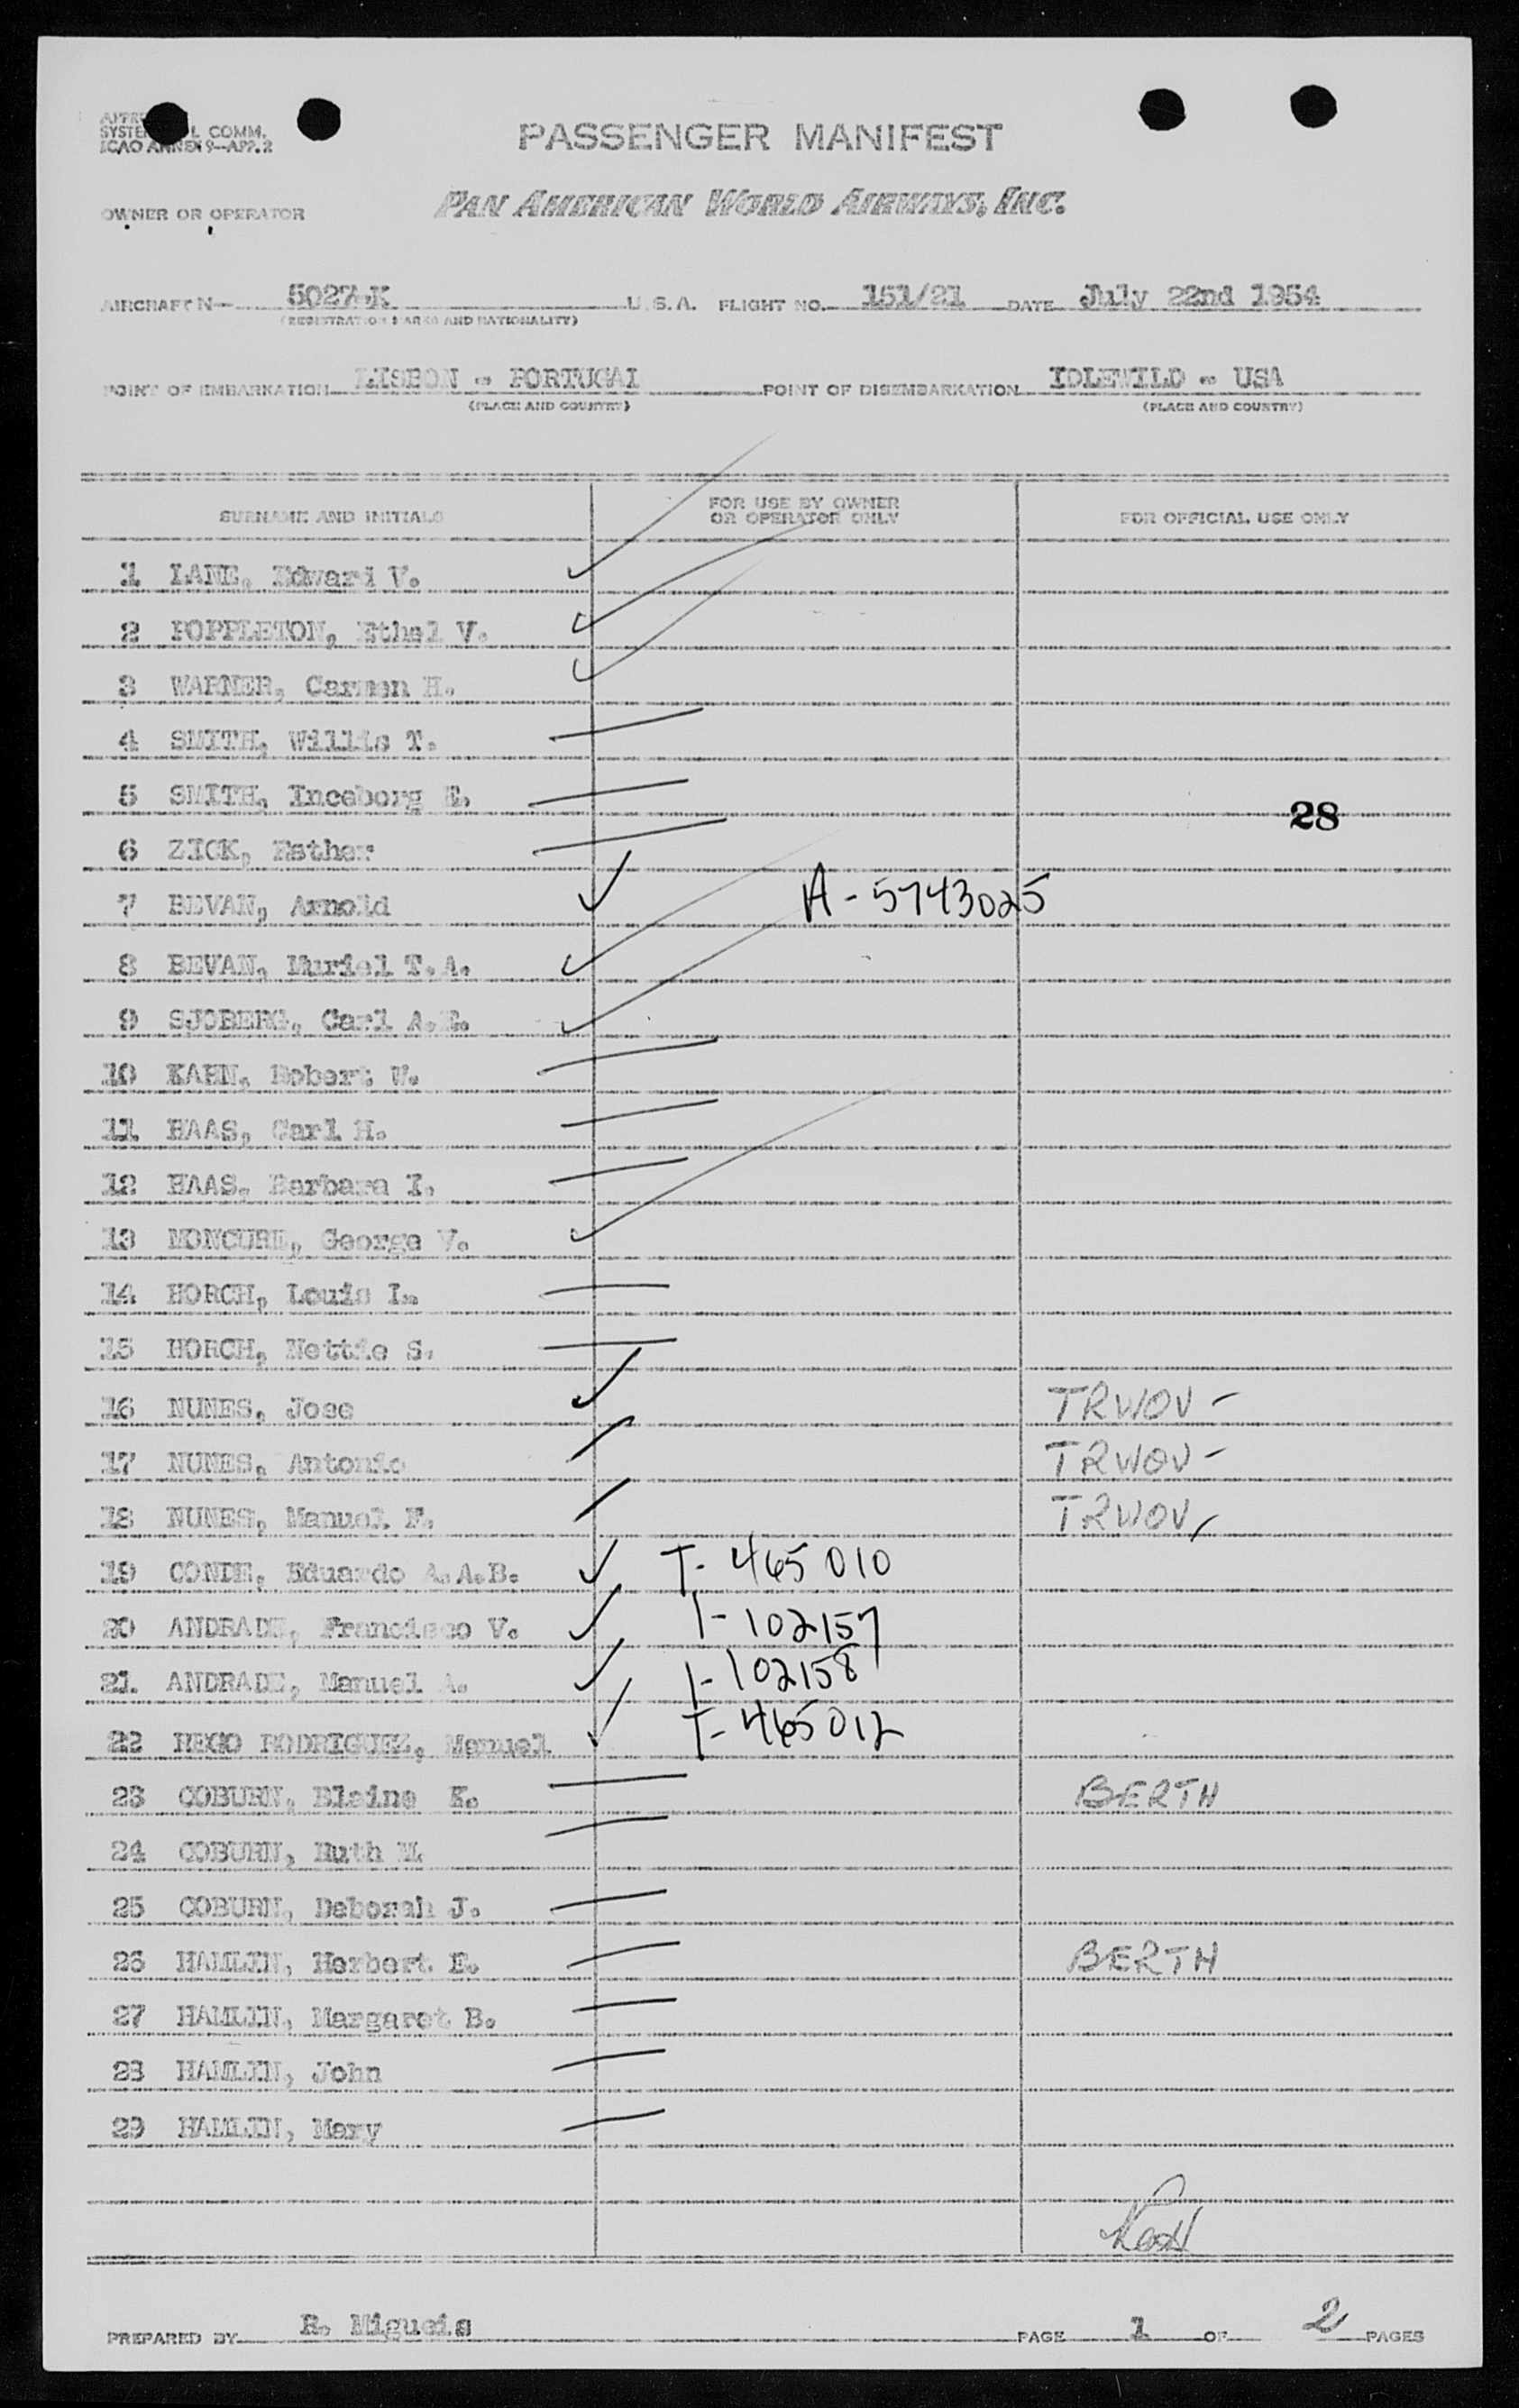 SYSTE L COMM.
ICAO ANNEX 9-APP. 2
PASSENGER MANIFEST
OWNER OR OPERATOR
PAN AMERICAN WORLD AIRWAYS, INC.
AIRCRAFT N- 5027-K U.S.A. FLIGHT NO. 151/21 DATE July 22nd 1954
(REGISTRATION MARKS AND NATIONALITY)
POINT OF EMBARKATION LISBON - PORTUGAL POINT OF DISEMBARKATION IDLEWILD - USA
(PLACE AND COUNTRY) (PLACE AND COUNTRY)
SURNAME AND INITIALS FOR USE BY OWNER OR OPERATOR ONLY FOR OFFICIAL USE ONLY
1 LANE, Edward V.
2 POPPLETON, Ethel V.
3 WARNER, Carmen H.
4 SMITH, Willis T.
5 SMITH, Inceborg E. 28
6 ZICK, Esther
7 BEVAN, Arnold A-5743025
8 BEVAN, Muriel T.A.
9 SJOBERG, Carl A.E.
10 KAHN, Robert W.
11 HAAS, Carl H.
12 HAAS, Barbara I.
13 MONCURE, George V.
14 HORCH, Louis L.
15 HORCH, Nettie S.
16 NUNES, Jose TRWOV -
17 NUNES, Antonio TRWOV -
18 NUNES, Manuel F. TRWOV,
19 CONDE, Eduardo A.A.B. T- 465 010
20 ANDRADE, Francisco V. 1- 102157
21 ANDRADE, Manuel A. 1- 102158
22 REGO RODRIGUEZ, Manuel T- 465 012
23 COBURN, Blaine E. BERTH
24 COBURN, Ruth M.
25 COBURN, Deborah J.
26 HAMLIN, Herbert E. BERTH
27 HAMLIN, Margaret B.
28 HAMLIN, John
29 HAMLIN, Mary
PREPARED BY R. Migueis PAGE 1 OF 2 PAGES